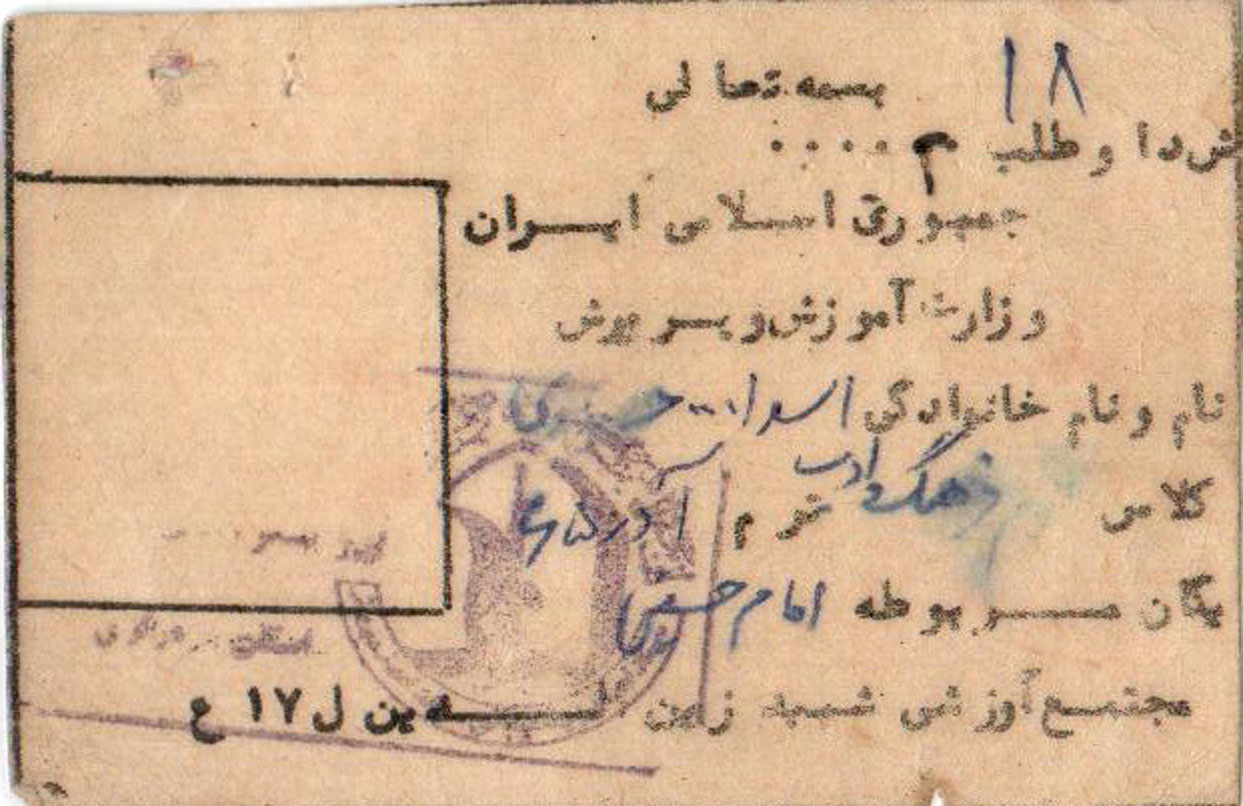 ۱۸
بسمه تعالی
ش داوطلب م ....
جمهوری اسلامی ایران
وزارت آموزش و پرورش
نام و نام خانوادگی اسدا...
کلاس فرهنگ و ادب ترم آذر ۶۵
یگان مربوطه امام حسین
مجتمع آموزشی شهید زین الدین ل ۱۷ ع